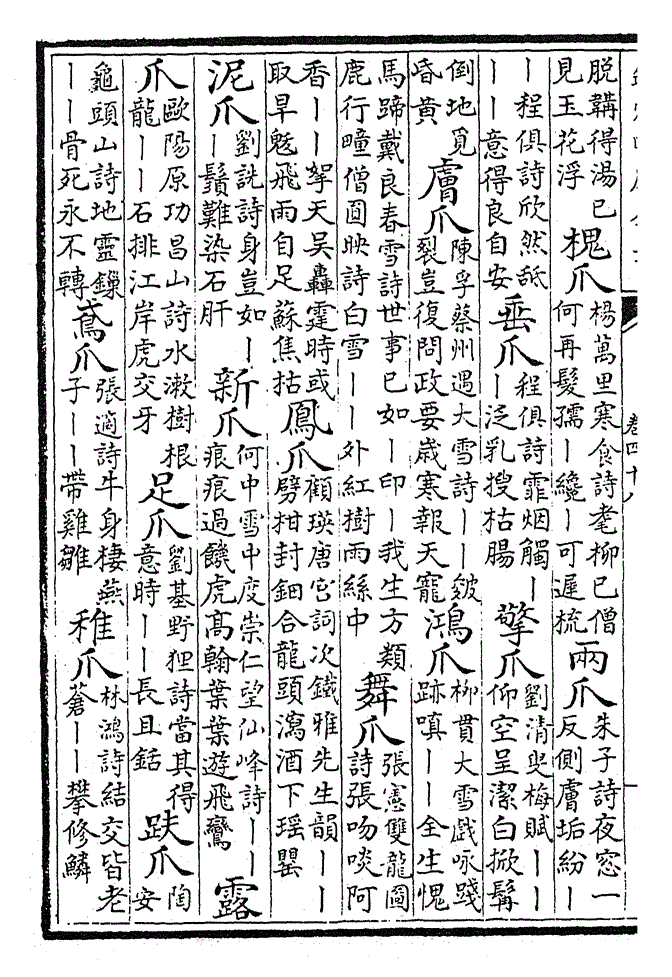 卷四十八
脫韝得湯已
見玉花浮
槐爪
楊萬里寒食詩耄柳已僧
何再髮孺丨纔丨可遲梳
兩爪
朱子詩夜窓一
反側膚垢紛丨
丨程俱詩欣然舐
丨丨意得良自安
垂爪
程俱詩霏烟觸丨
丨泛乳搜枯腸
擎爪
劉清叟梅賦丨丨
仰空呈潔白掀髯
倒地覓
昏黃
膚爪
陳孚蔡州遇大雪詩丨丨皴
裂豈復問政要歲寒報天寵
鴻爪
柳貫大雪戲咏踐
跡嗔丨丨全生愧
馬蹄戴良春雪詩世事已如丨印丨我生方類
鹿行疃僧圓映詩白雪丨丨外紅樹雨絲中
舞爪
張憲雙龍圖
詩張吻啖阿
香丨丨拏天吳轟霆時或
取旱魃飛雨自足蘇焦枯
鳳爪
顧瑛唐宮詞次鐵雅先生韻丨丨
劈柑封鈿合龍頭瀉酒下瑶罌
泥爪
劉詵詩身豈如丨
丨鬚難染石肝
新爪
何中雪中度崇仁望仙峰詩丨丨
痕痕過饑虎高翰葉葉遊飛鸞
露
爪
歐陽原功昌山詩水漱樹根
龍丨丨石排江岸虎交牙
足爪
劉基野狸詩當其得
意時丨丨長且銛
趺爪
陶
安
龜頭山詩地靈鏁
丨丨骨死永不轉
鳶爪
張適詩牛身棲燕
子丨丨帶雞雛
稚爪
林鴻詩結交皆老
蒼丨丨攀修鱗